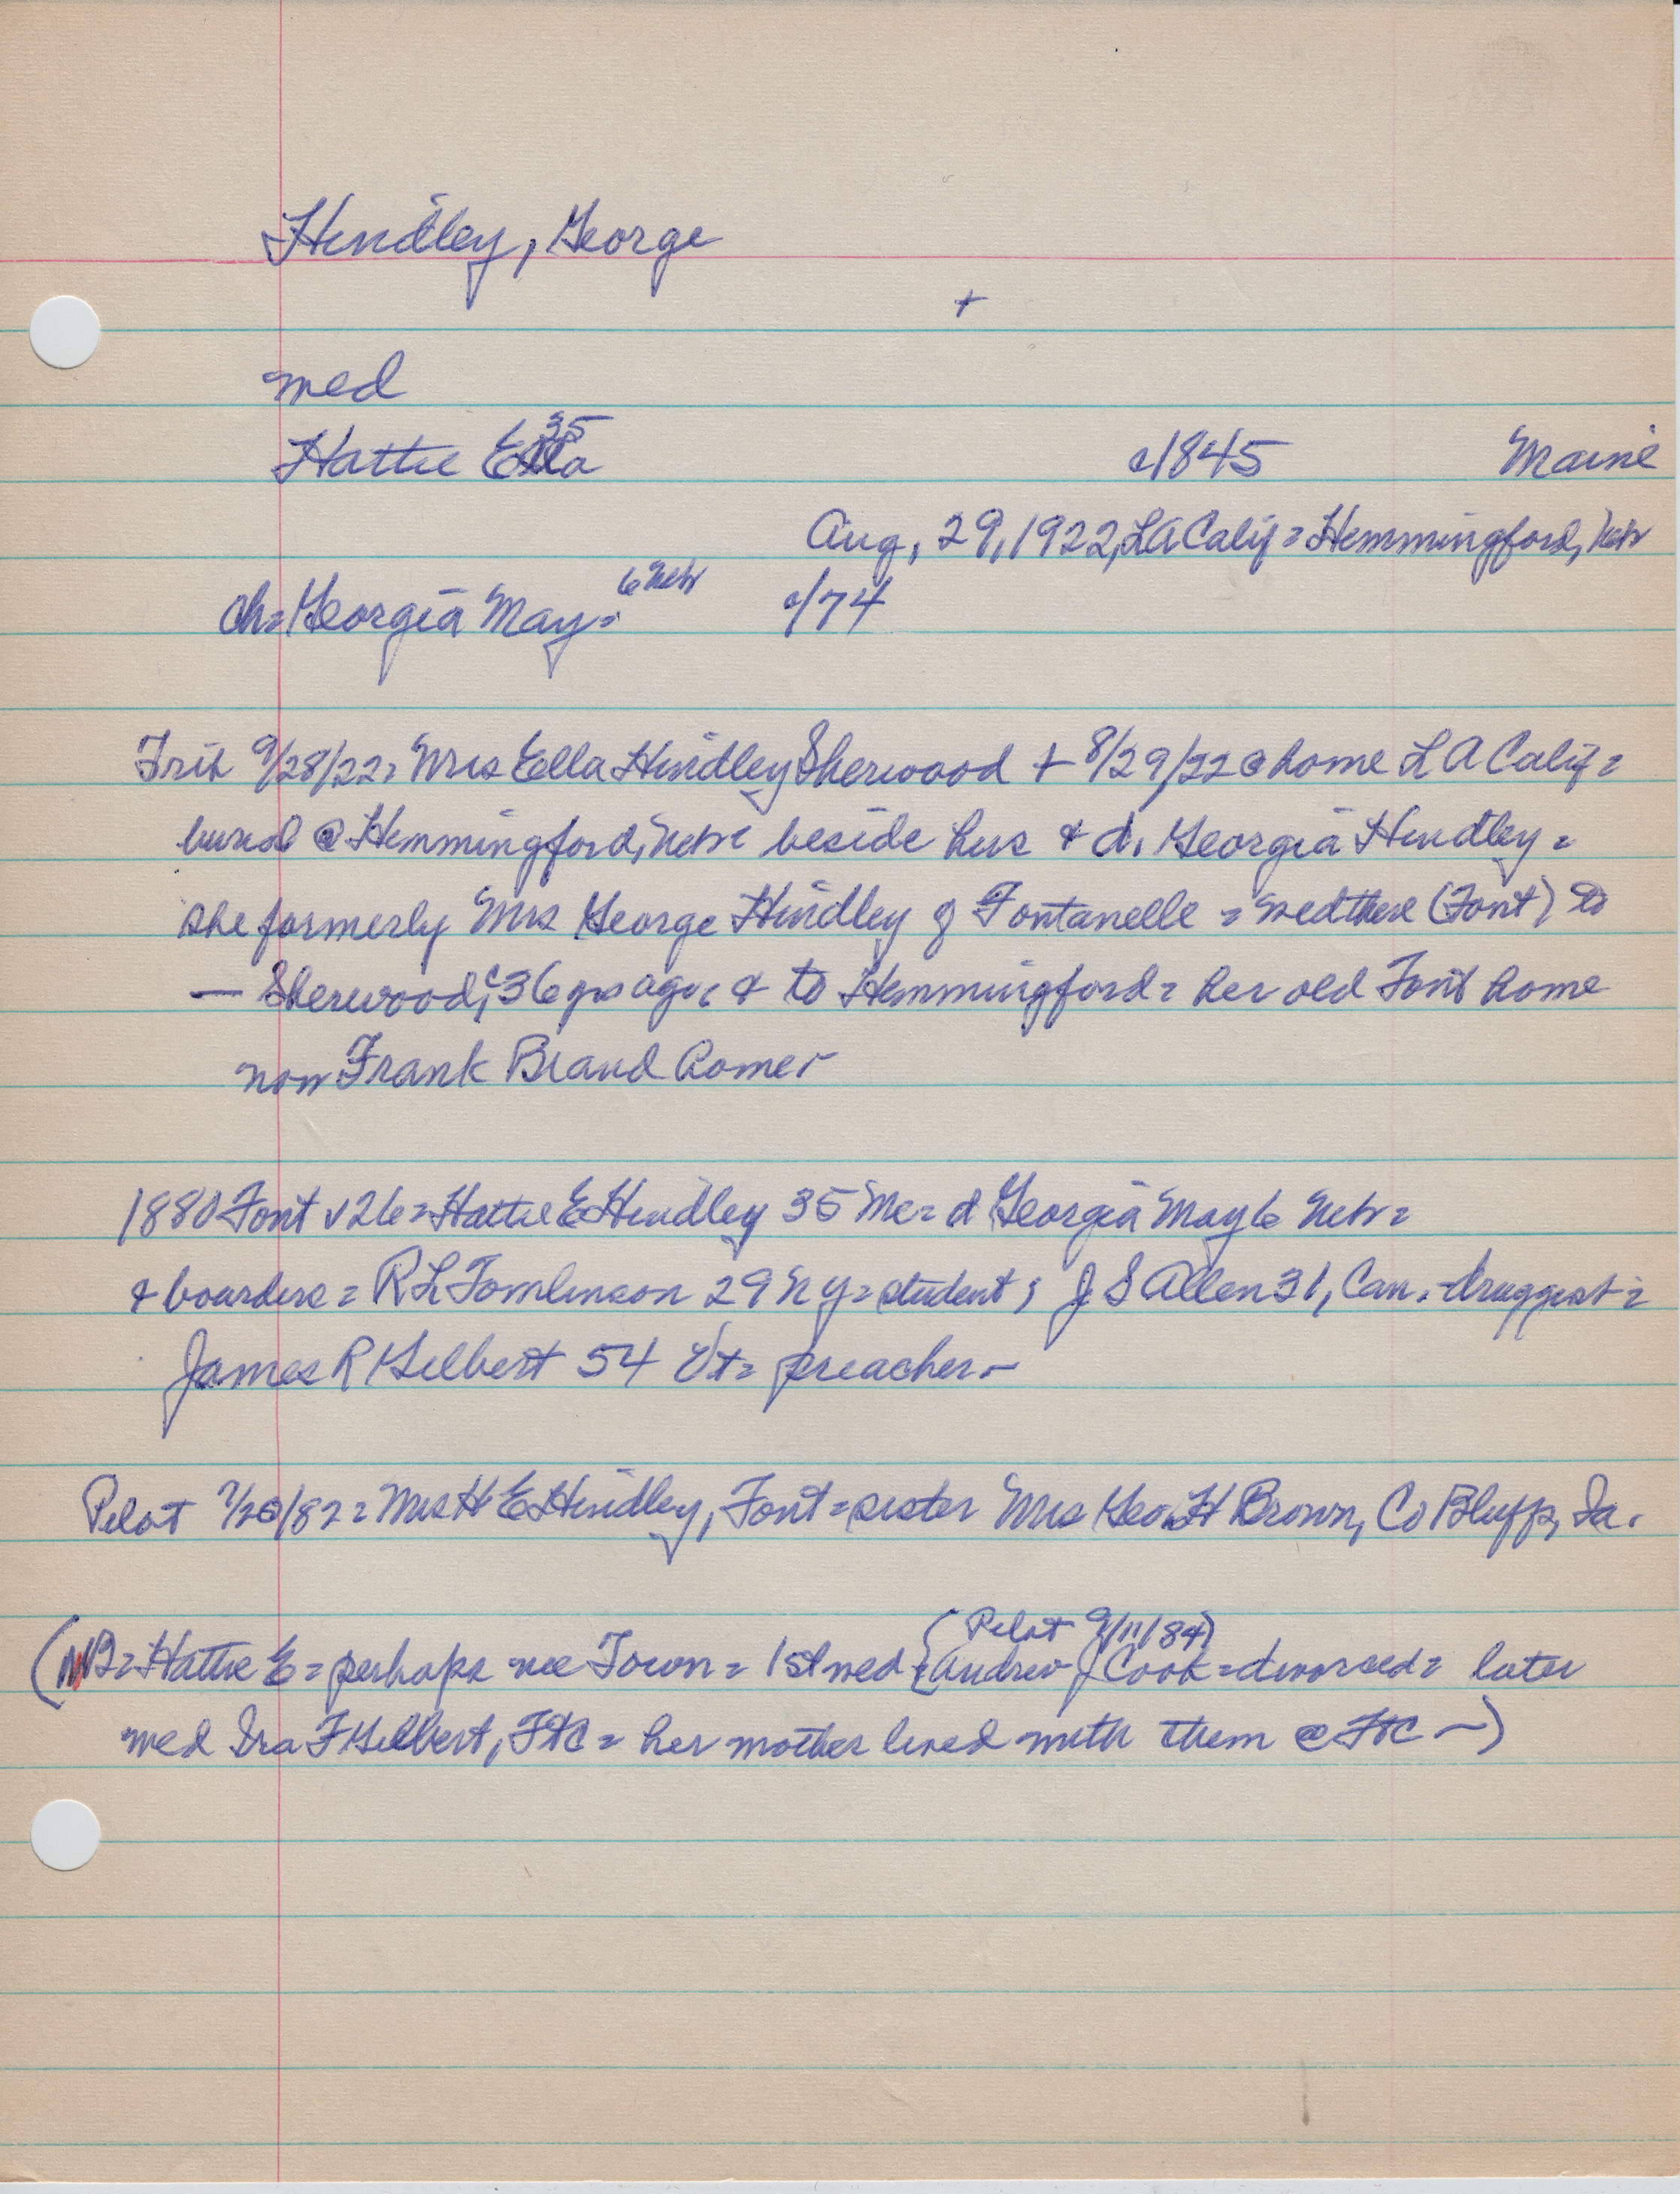 Hindley, George
+
med
35
Hattie Ella c1845 Maine
Aug, 29, 1922, LA Calif = Hemmingford, Nebr
ch = Georgia May = 6 Nebr c/74
Trib 9/28/22 = Mrs Ella Hindley Sherwood + 8/29/22 @ home L A Calif =
buried @ Hemmingford, Nebr beside hus & d. Georgia Hindley =
she formerly Mrs George Hindley of Fontanelle = med there (Font) to
— Sherwood, c36 yrs ago, & to Hemmingford = her old Font home
now Frank Brand home -
1880 Font v26 = Hattie E Hindley 35 Me = d Georgia May 6 Nebr =
& boarders = R L Tomlinson 29 NY = student ; J S Allen 31, Can. druggist =
James R Gilbert 54 Vt = preacher -
Pilot 7/20/82 = Mrs H E Hindley, Font = sister Mrs Geo H Brown, Co Bluffs, Ia.
(Pilot 9/11/84)
(NB = Hattie E = perhaps nee Town = 1st med {Andrew J Cook = divorced = later
med Ira F Gilbert, FtC = her mother lived with them @ FtC —)